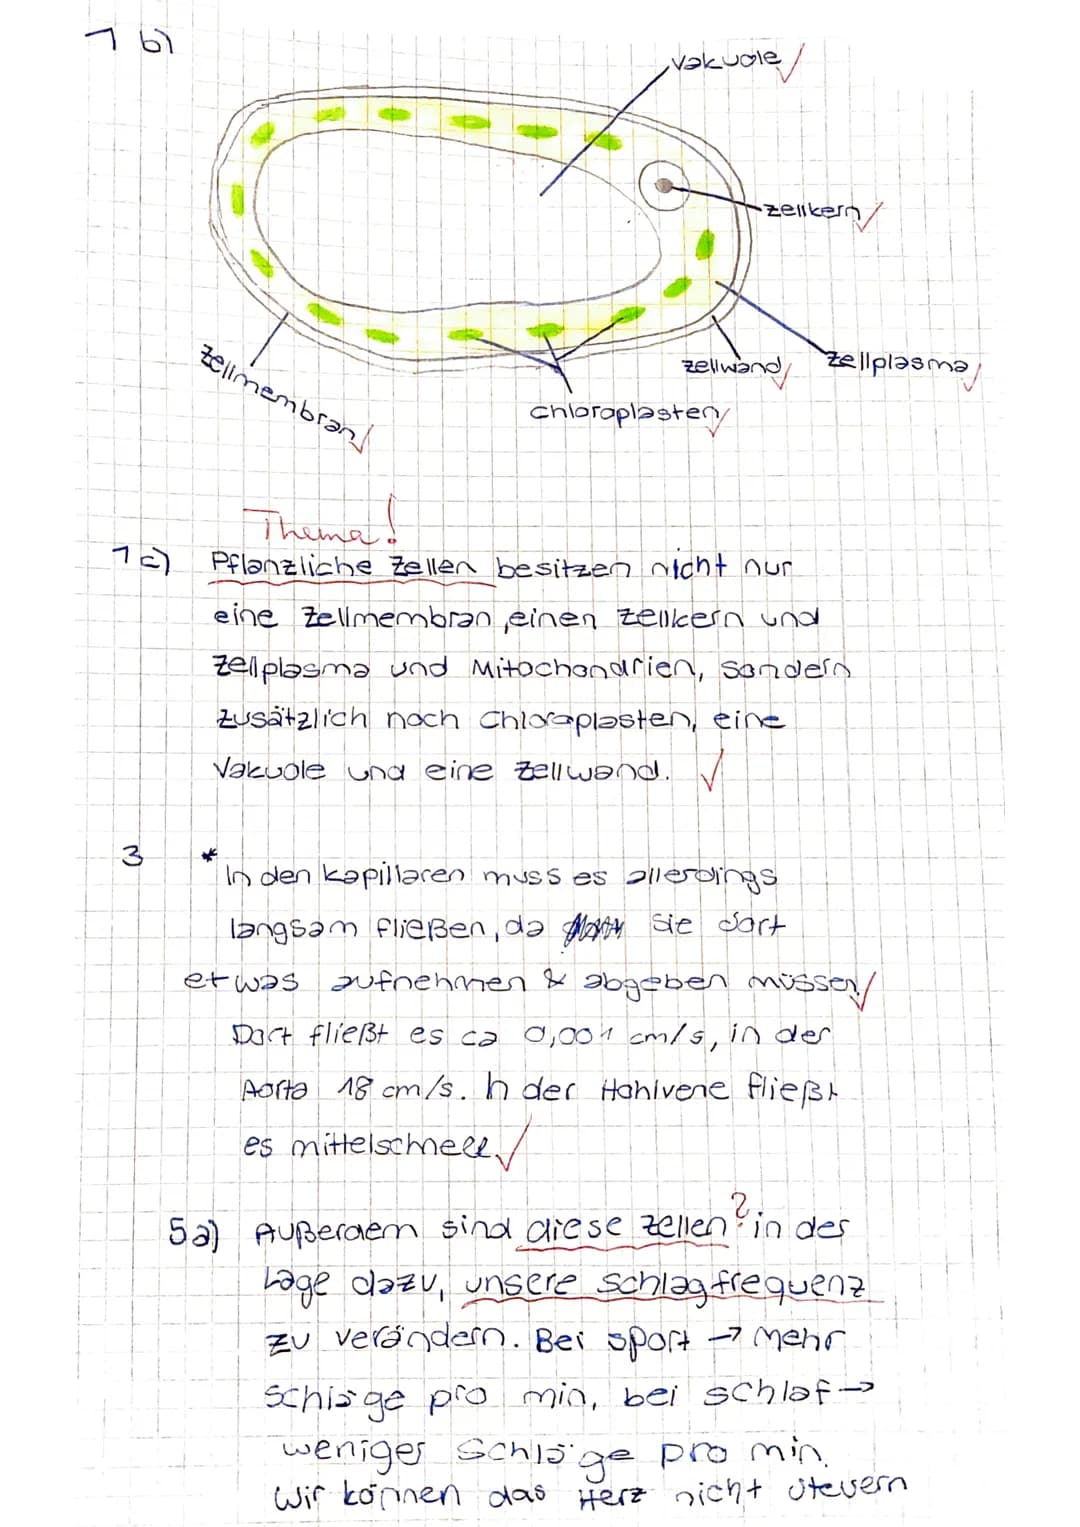 1 b)
Vakuole
Zellkern
Zellplasma
Zellwand
Chloroplasten
Zellmembran
Thema!
1c) Pflanzliche Zellen besitzen nicht nur
eine Zellmembran, einen Zellkern und
Zellplasma und Mitochondrien, sondern
zusätzlich noch Chloroplasten, eine
Vakuole und eine Zellwand.
3 * In den Kapillaren muss es allerdings
langsam fließen, da sie dort
etwas aufnehmen & abgeben müssen
Dort fließt es ca 0,001 cm/s, in der
Aorta 18 cm/s. In der Hohlvene fließt
es mittelschnell.
5a) Außerdem sind diese Zellen ? in der
Lage dazu, unsere Schlagfrequenz
zu verändern. Bei Sport → Mehr
Schläge pro min, bei Schlaf →
weniger Schläge pro min.
Wir können das Herz nicht steuern